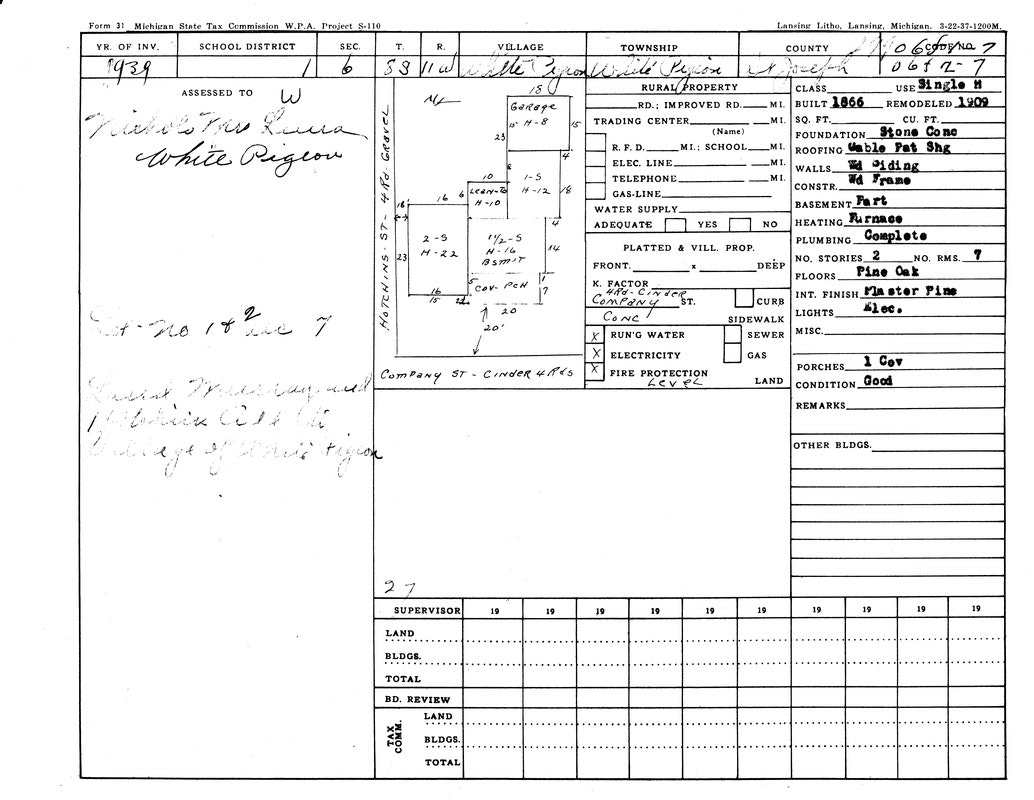 Form 31 Michigan State Tax Commission W.P.A. Project S-110
Lansing Litho, Lansing, Michigan. 3-22-37-1200M.
YR. OF INV. SCHOOL DISTRICT SEC. T. R. VILLAGE TOWNSHIP COUNTY CODE NO.
1939 1 6 8S 11W White Pigeon White Pigeon St Joseph 06f 2-7
ASSESSED TO W
Nichols Mrs Laura
White Pigeon
Lot No 1 & 2 7
Murray and
Village of White Pigeon
HOTCHINS-ST-4RD GRAVEL
18
GARAGE
15 H-8 15
23
4
8
10
1-S
H-12
18
LEAN-TO
H-10
6
16
16'
4
2-S
H-22
23
1 1/2-S
H-16
BSMNT
14
COV-PCH
5
1
7
16
15
12
20
20'
COMPANY ST-CINDER 4RDS
27
RURAL PROPERTY
RD.; IMPROVED RD. MI.
TRADING CENTER MI.
(Name)
R. F. D. MI.; SCHOOL MI.
ELEC. LINE MI.
TELEPHONE MI.
GAS-LINE
WATER SUPPLY
ADEQUATE YES NO
PLATTED & VILL. PROP.
FRONT. x DEEP
K. FACTOR
4RD-CINDER
COMPANY ST. CURB
CONC SIDEWALK
X RUN'G WATER SEWER
X ELECTRICITY GAS
X FIRE PROTECTION
LEVEL LAND
CLASS USE Single H
BUILT 1866 REMODELED 1909
SQ. FT. CU. FT.
FOUNDATION Stone Conc
ROOFING Gable Pat Shg
WALLS Wd Siding
CONSTR. Wd Frame
BASEMENT Part
HEATING Furnace
PLUMBING Complete
NO. STORIES 2 NO. RMS. 7
FLOORS Pine Oak
INT. FINISH Plaster Pine
LIGHTS Elec.
MISC.
PORCHES 1 Cov
CONDITION Good
REMARKS
OTHER BLDGS.
SUPERVISOR 19 19 19 19 19 19 19 19 19 19
LAND
BLDGS.
TOTAL
BD. REVIEW
TAX COMM.
LAND
BLDGS.
TOTAL